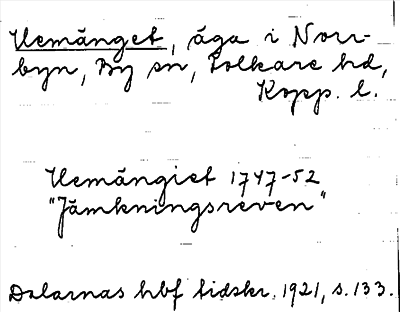 Hemänget, äga i Norr-
byn, By sn, Folkare hd,
Kopp. l.
Hemängiet 1747-52
"Jämkningsreven"
Dalarnas hbf tidskr. 1921, s. 133.